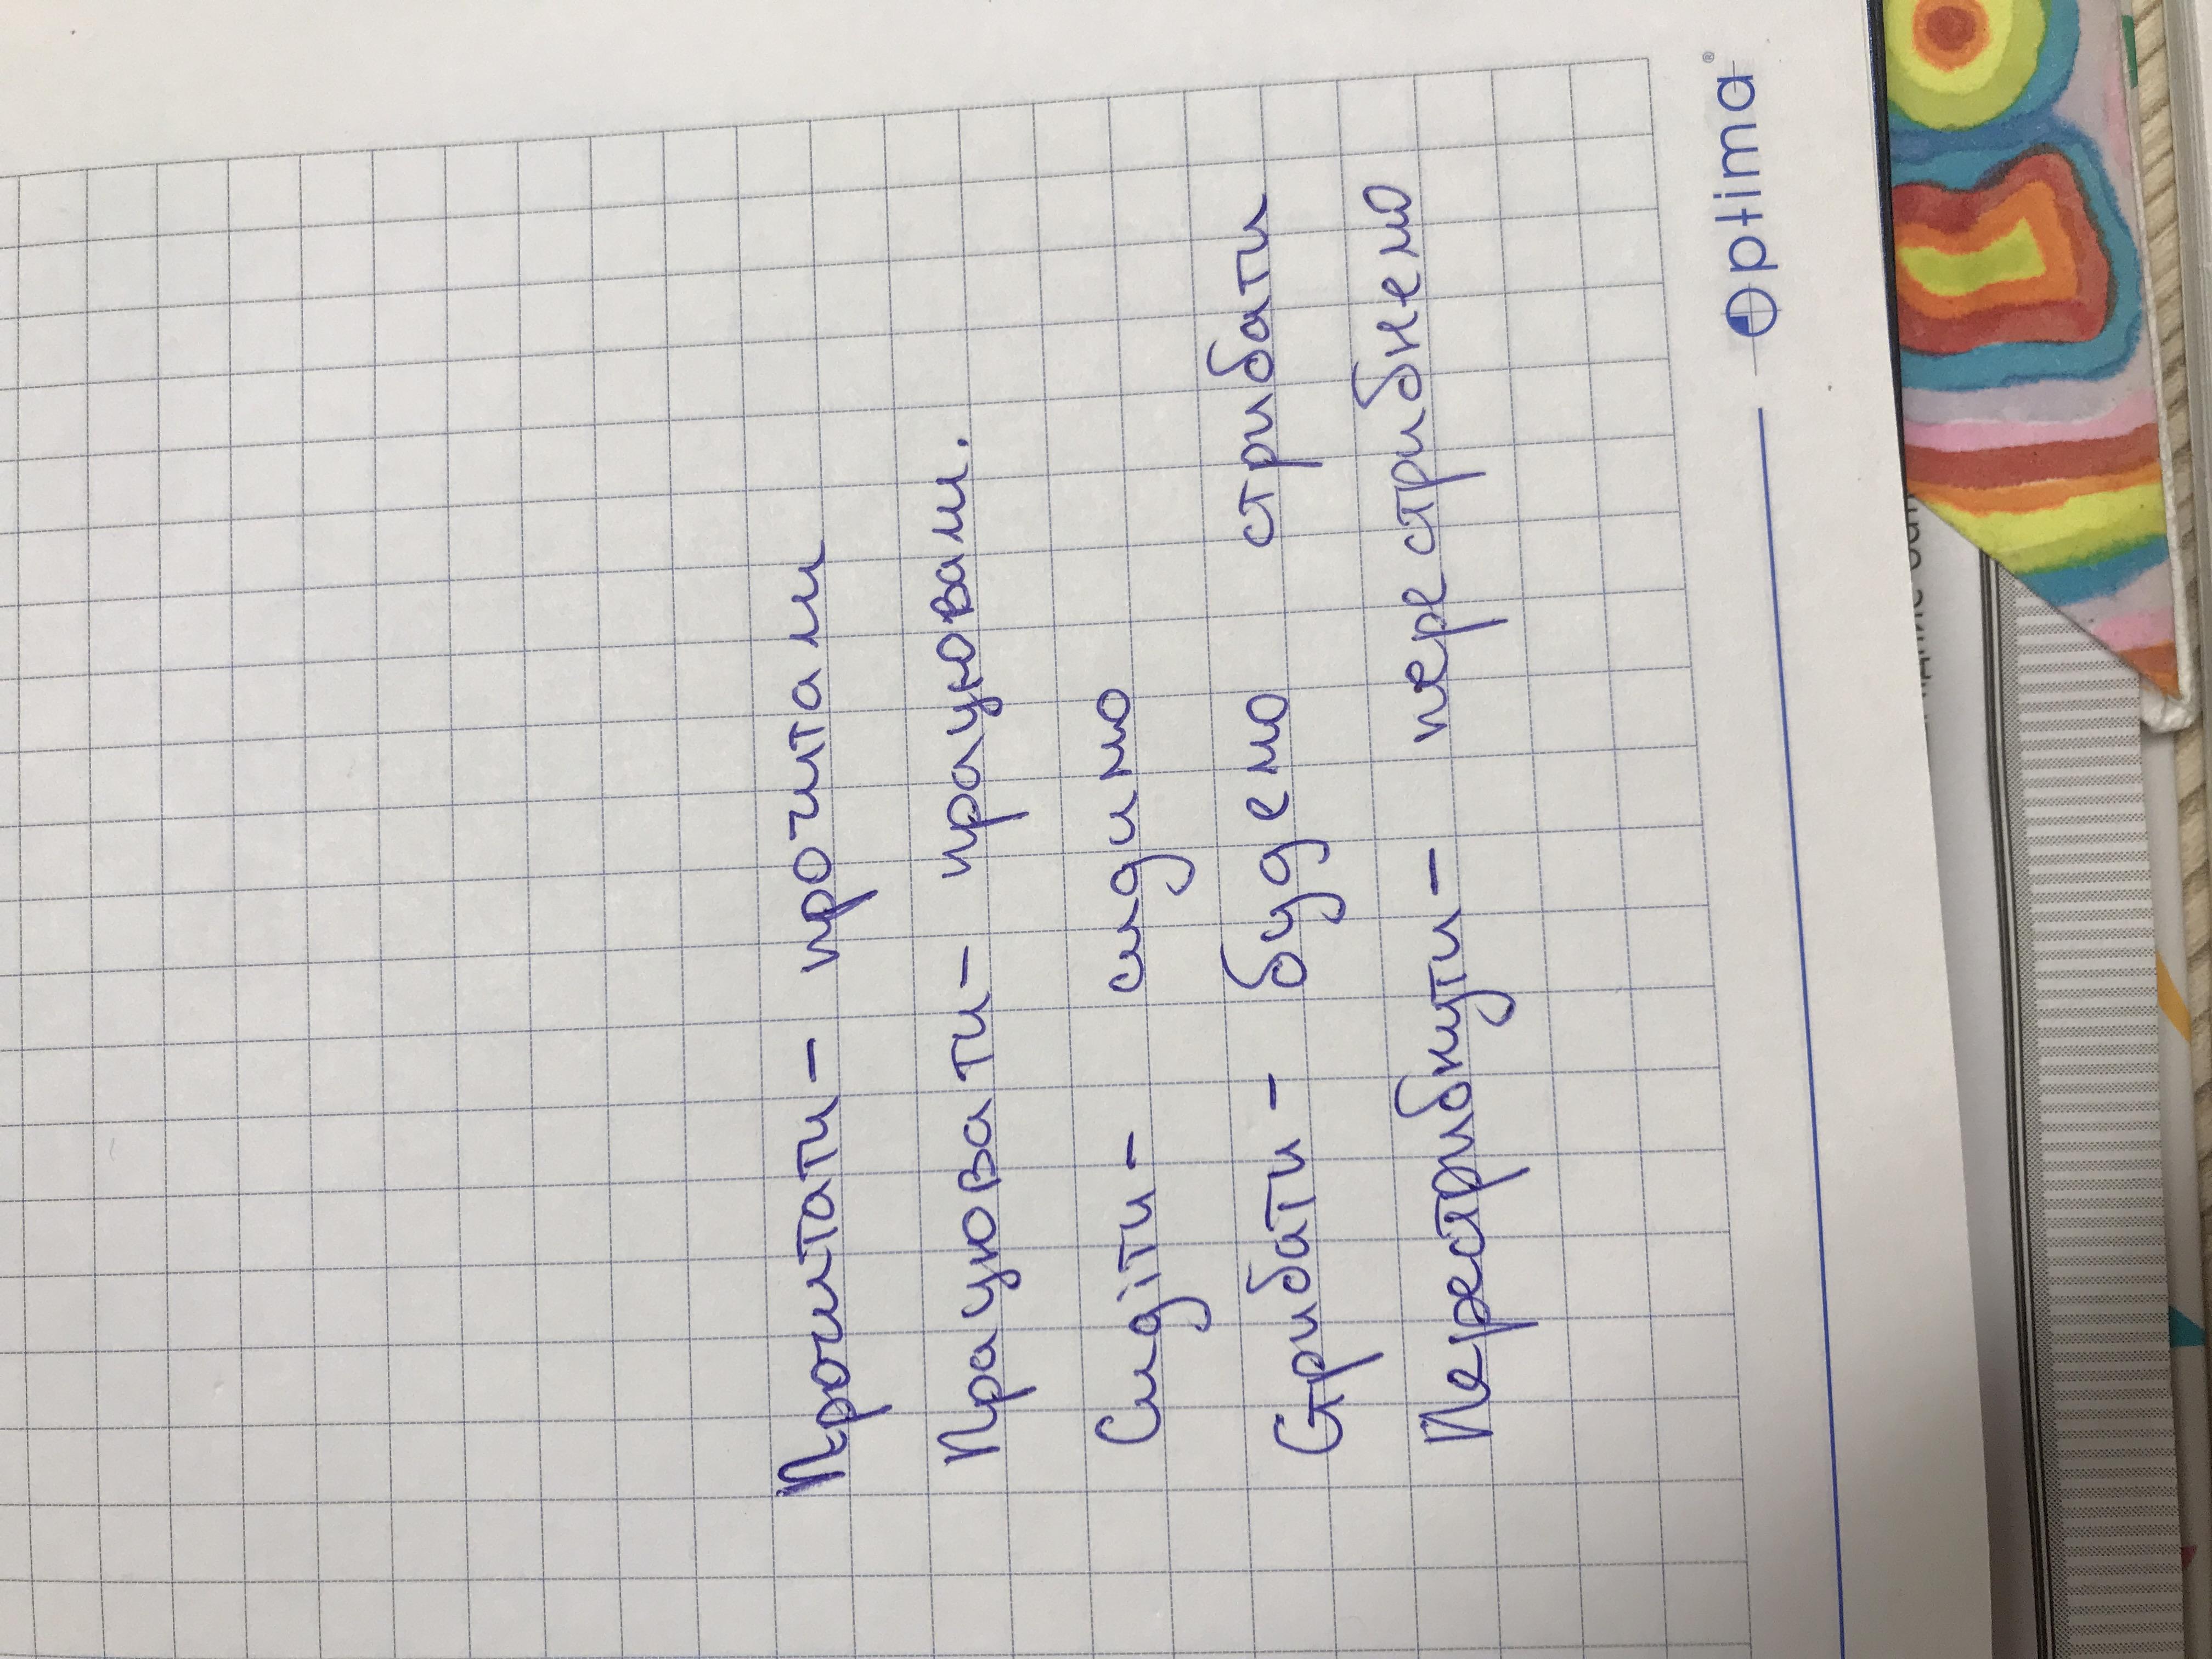 Прочитати - прочитали
Працювати - працювали.
Сидіти - сидимо
Стрибати - будемо стрибати
Перестрибнути - перестрибнемо
Optima